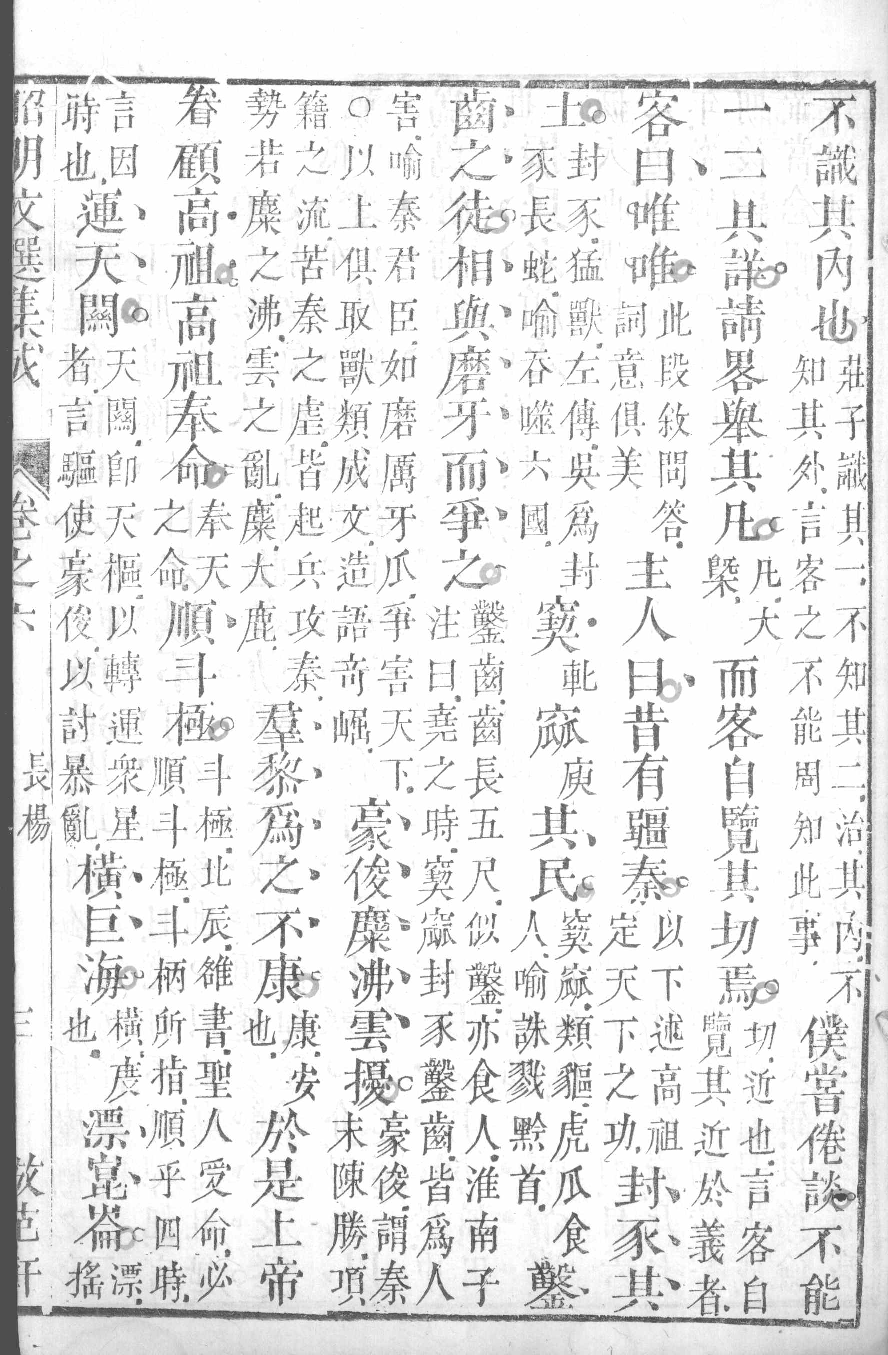 不識其內也莊子識其一不知其二治其內不知其外言客之不能周知此事僕嘗倦談不能
一二其詳請畧舉其凡凡大槩而客自覽其切焉切近也言客自覽其近於義者
客曰唯唯此段敘問答詞意俱美主人曰昔有疆秦以下述高祖定天下之功封豕其
土封豕猛獸左傳吳為封豕長蛇喻吞噬六國窫軋窳庾其民窫窳類貙虎爪食人喻誅戮黔首鑿
齒之徒相與磨牙而爭之鑿齒齒長五尺似鑿亦食人淮南子注曰堯之時窫窳封豕鑿齒皆為人
害喻秦君臣如磨厲牙爪爭害天下○以上俱取獸類成文造語奇崛豪俊麋沸雲擾豪俊謂秦末陳勝項
籍之流苦秦之虐皆起兵攻秦勢若麋之沸雲之亂麋大鹿羣黎為之不康康安也於是上帝
眷顧高祖高祖奉命奉天之命順斗極斗極北辰雒書聖人受命必順斗極斗柄所指順乎四時
言因時也運天關天關卽天樞以轉運眾星者言驅使豪俊以討暴亂橫巨海橫度也漂崑崙漂搖
昭明文選集成 卷之六 長楊 三